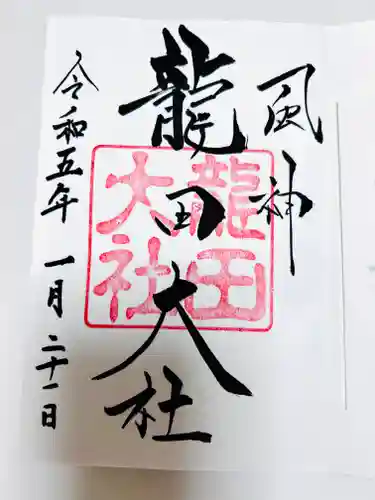 風神
龍田大社
龍田
大社
令和五年 一月 二十一日